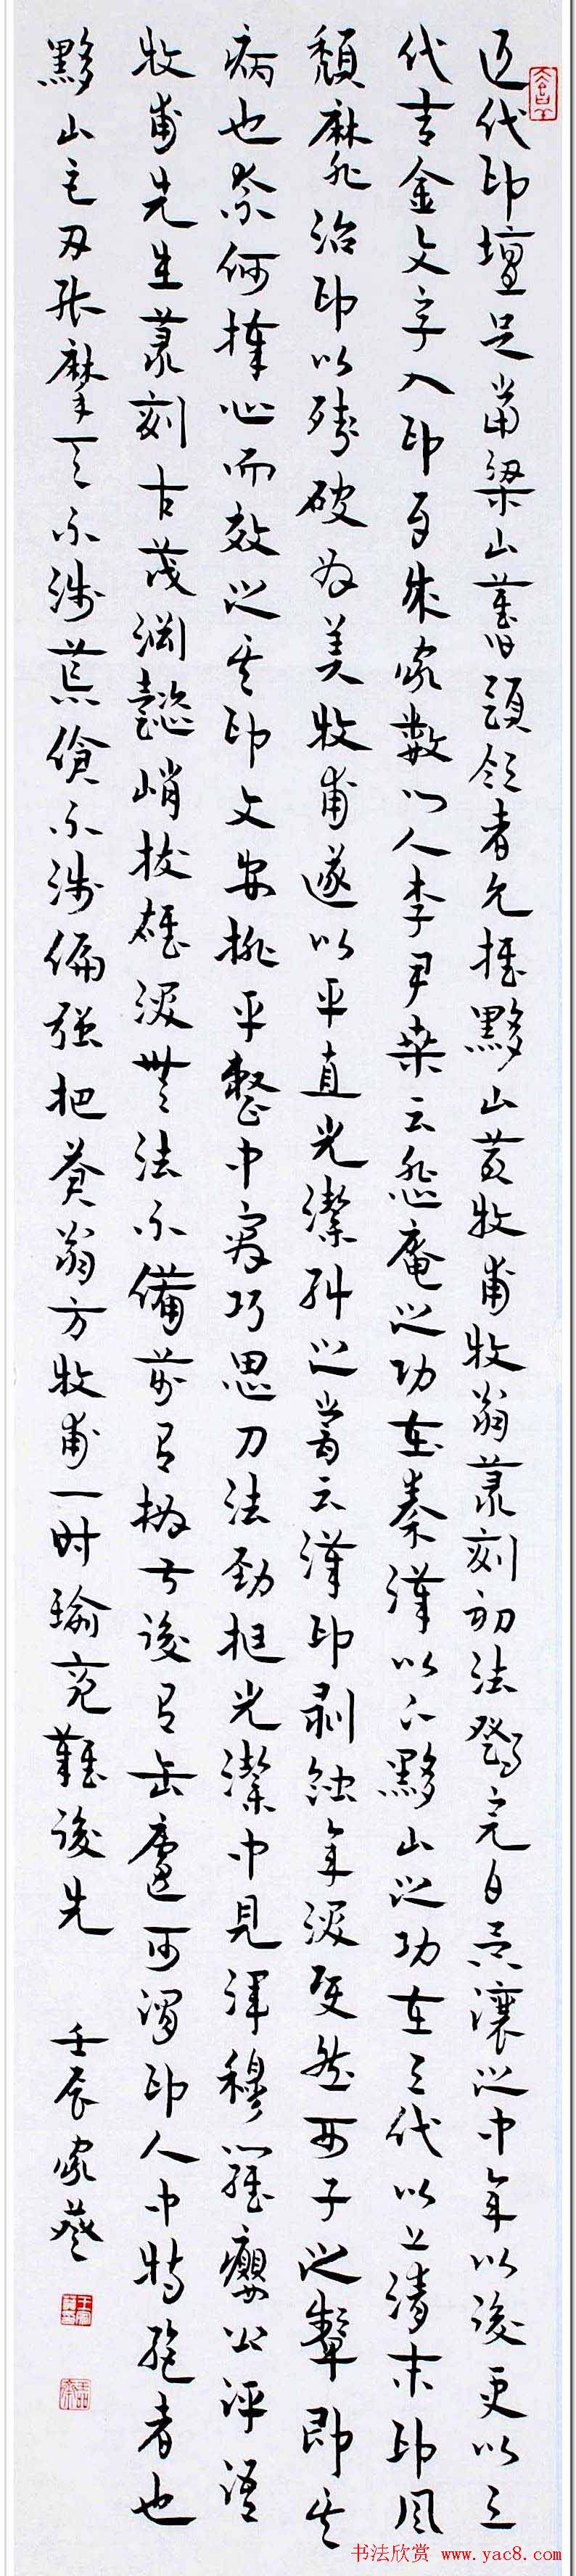 近代印壇足當梁山舊頭領者允推黟山黃牧甫牧翁篆刻初法鄧完白吳讓之中年以後更以三
代吉金文字入印自成家數門人李尹桑云悲庵之功在秦漢以下黟山之功在三代以上清末印風
頹靡治印以殘破為美牧甫遂以平直光潔糾之嘗云漢印剝蝕年深使然西子之顰即其
病也奈何捧心而效之其印文安排平整中寓巧思刀法勁挺光潔中見渾穆羅癭公評語
牧甫先生篆刻古茂淵懿峭拔雄深無法不備前有撝叔後有缶廬可謂印人中特絕者也
黟山毛刃張摩天不涉荒傖不涉偏強把黃翁方牧甫一時瑜亮難後先
壬辰家葵
书法欣赏 www.yac8.com